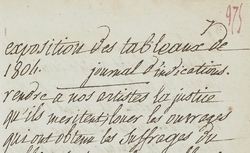 7
975
exposition des tableaux de
1804. journal d'indications.
rendre a nos artistes la justice
qu'ils meritent, louer les ouvrages
qui ont obtenu les suffrages du